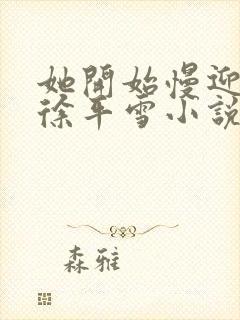 她開始慢迎
徐平雪小說
森雅